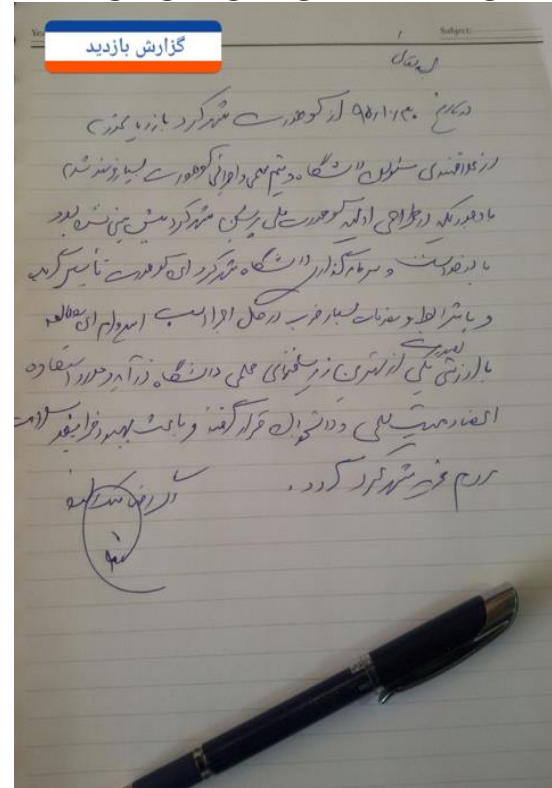 گزارش بازدید
Subject:
بسمه تعالی
در تاریخ ۹۵/۱۰/۳۰ از کوهورت شهرکرد بازدید بعمل
از علاقمندی مسئولین دانشگاه و تیم علمی و اجرایی کوهورت بسیار خرسند شدم
با وجودیکه در طراحی اولیه کوهورت ملی پرشین شهرکرد پیش بینی نشده بود
با درخواست و سرمایه گذاری دانشگاه شهرکرد این کوهورت تأسیس گردید
و با شرایط و مقدمات بسیار خوب در حال اجرا است امیدوارم این مطالعه
با ارزش یکی از مهمترین زیرساختهای علمی دانشگاه در آید و مورد استفاده
اعضاء هیئت علمی و دانشجویان قرار گرفته و باعث بهبود سلامت
مردم عزیز شهرکرد گردد.